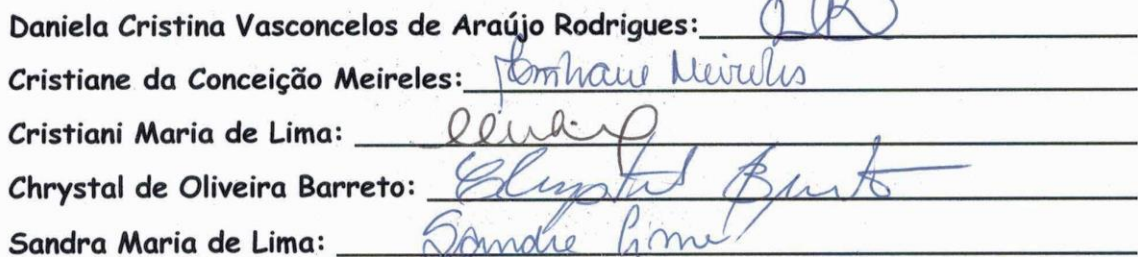 Daniela Cristina Vasconcelos de Araújo Rodrigues:
Cristiane da Conceição Meireles: Meireles
Cristiani Maria de Lima:
Chrystal de Oliveira Barreto: Chrystal Barreto
Sandra Maria de Lima: Sandra Lima